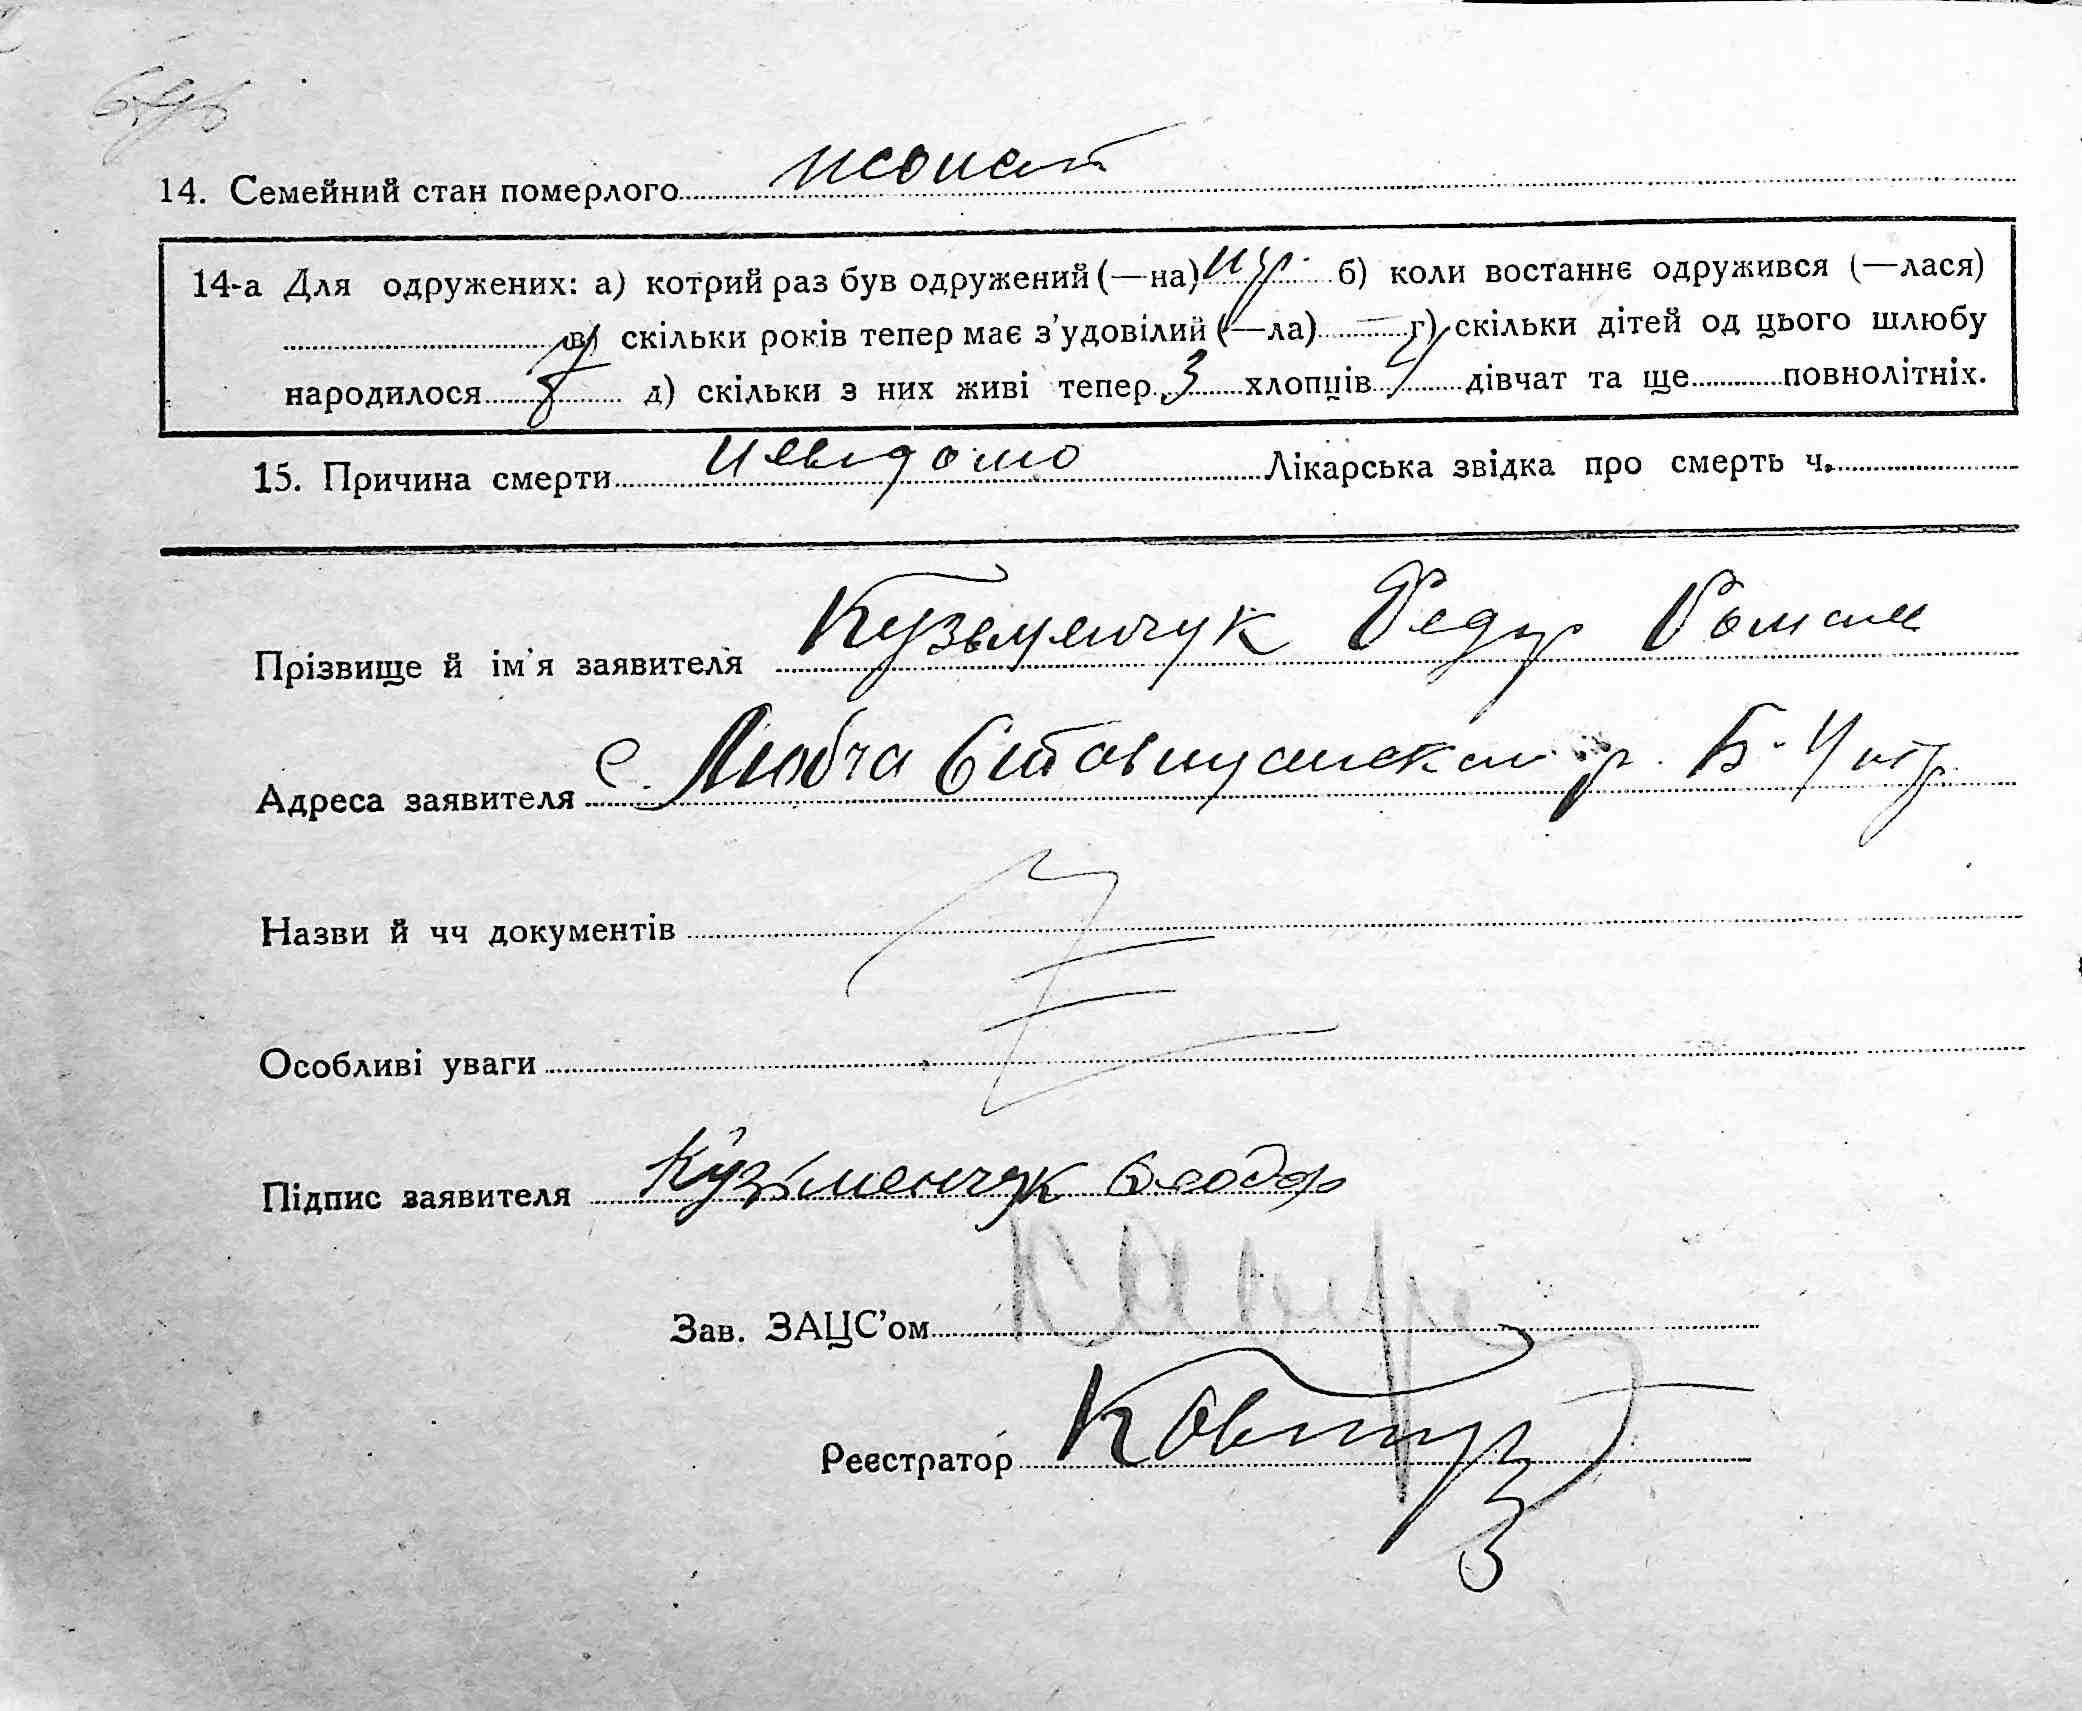 14. Семейний стан померлого
14-а Для одружених: а) котрий раз був одружений (—на) б) коли востаннє одружився (—лася)
в) скільки років тепер має з'удовілий (—ла) г) скільки дітей од цього шлюбу
народилося 8 д) скільки з них живі тепер 3 хлопців дівчат та ще повнолітніх.
15. Причина смерти невідомо Лікарська звідка про смерть ч.
Прізвище й ім'я заявителя Кузьменчук Федір Роман
Адреса заявителя с. Любча р. Б-
Назви й чч документів
Особливі уваги
Підпис заявителя Кузьменчук
Зав. ЗАЦС'ом
Реєстратор